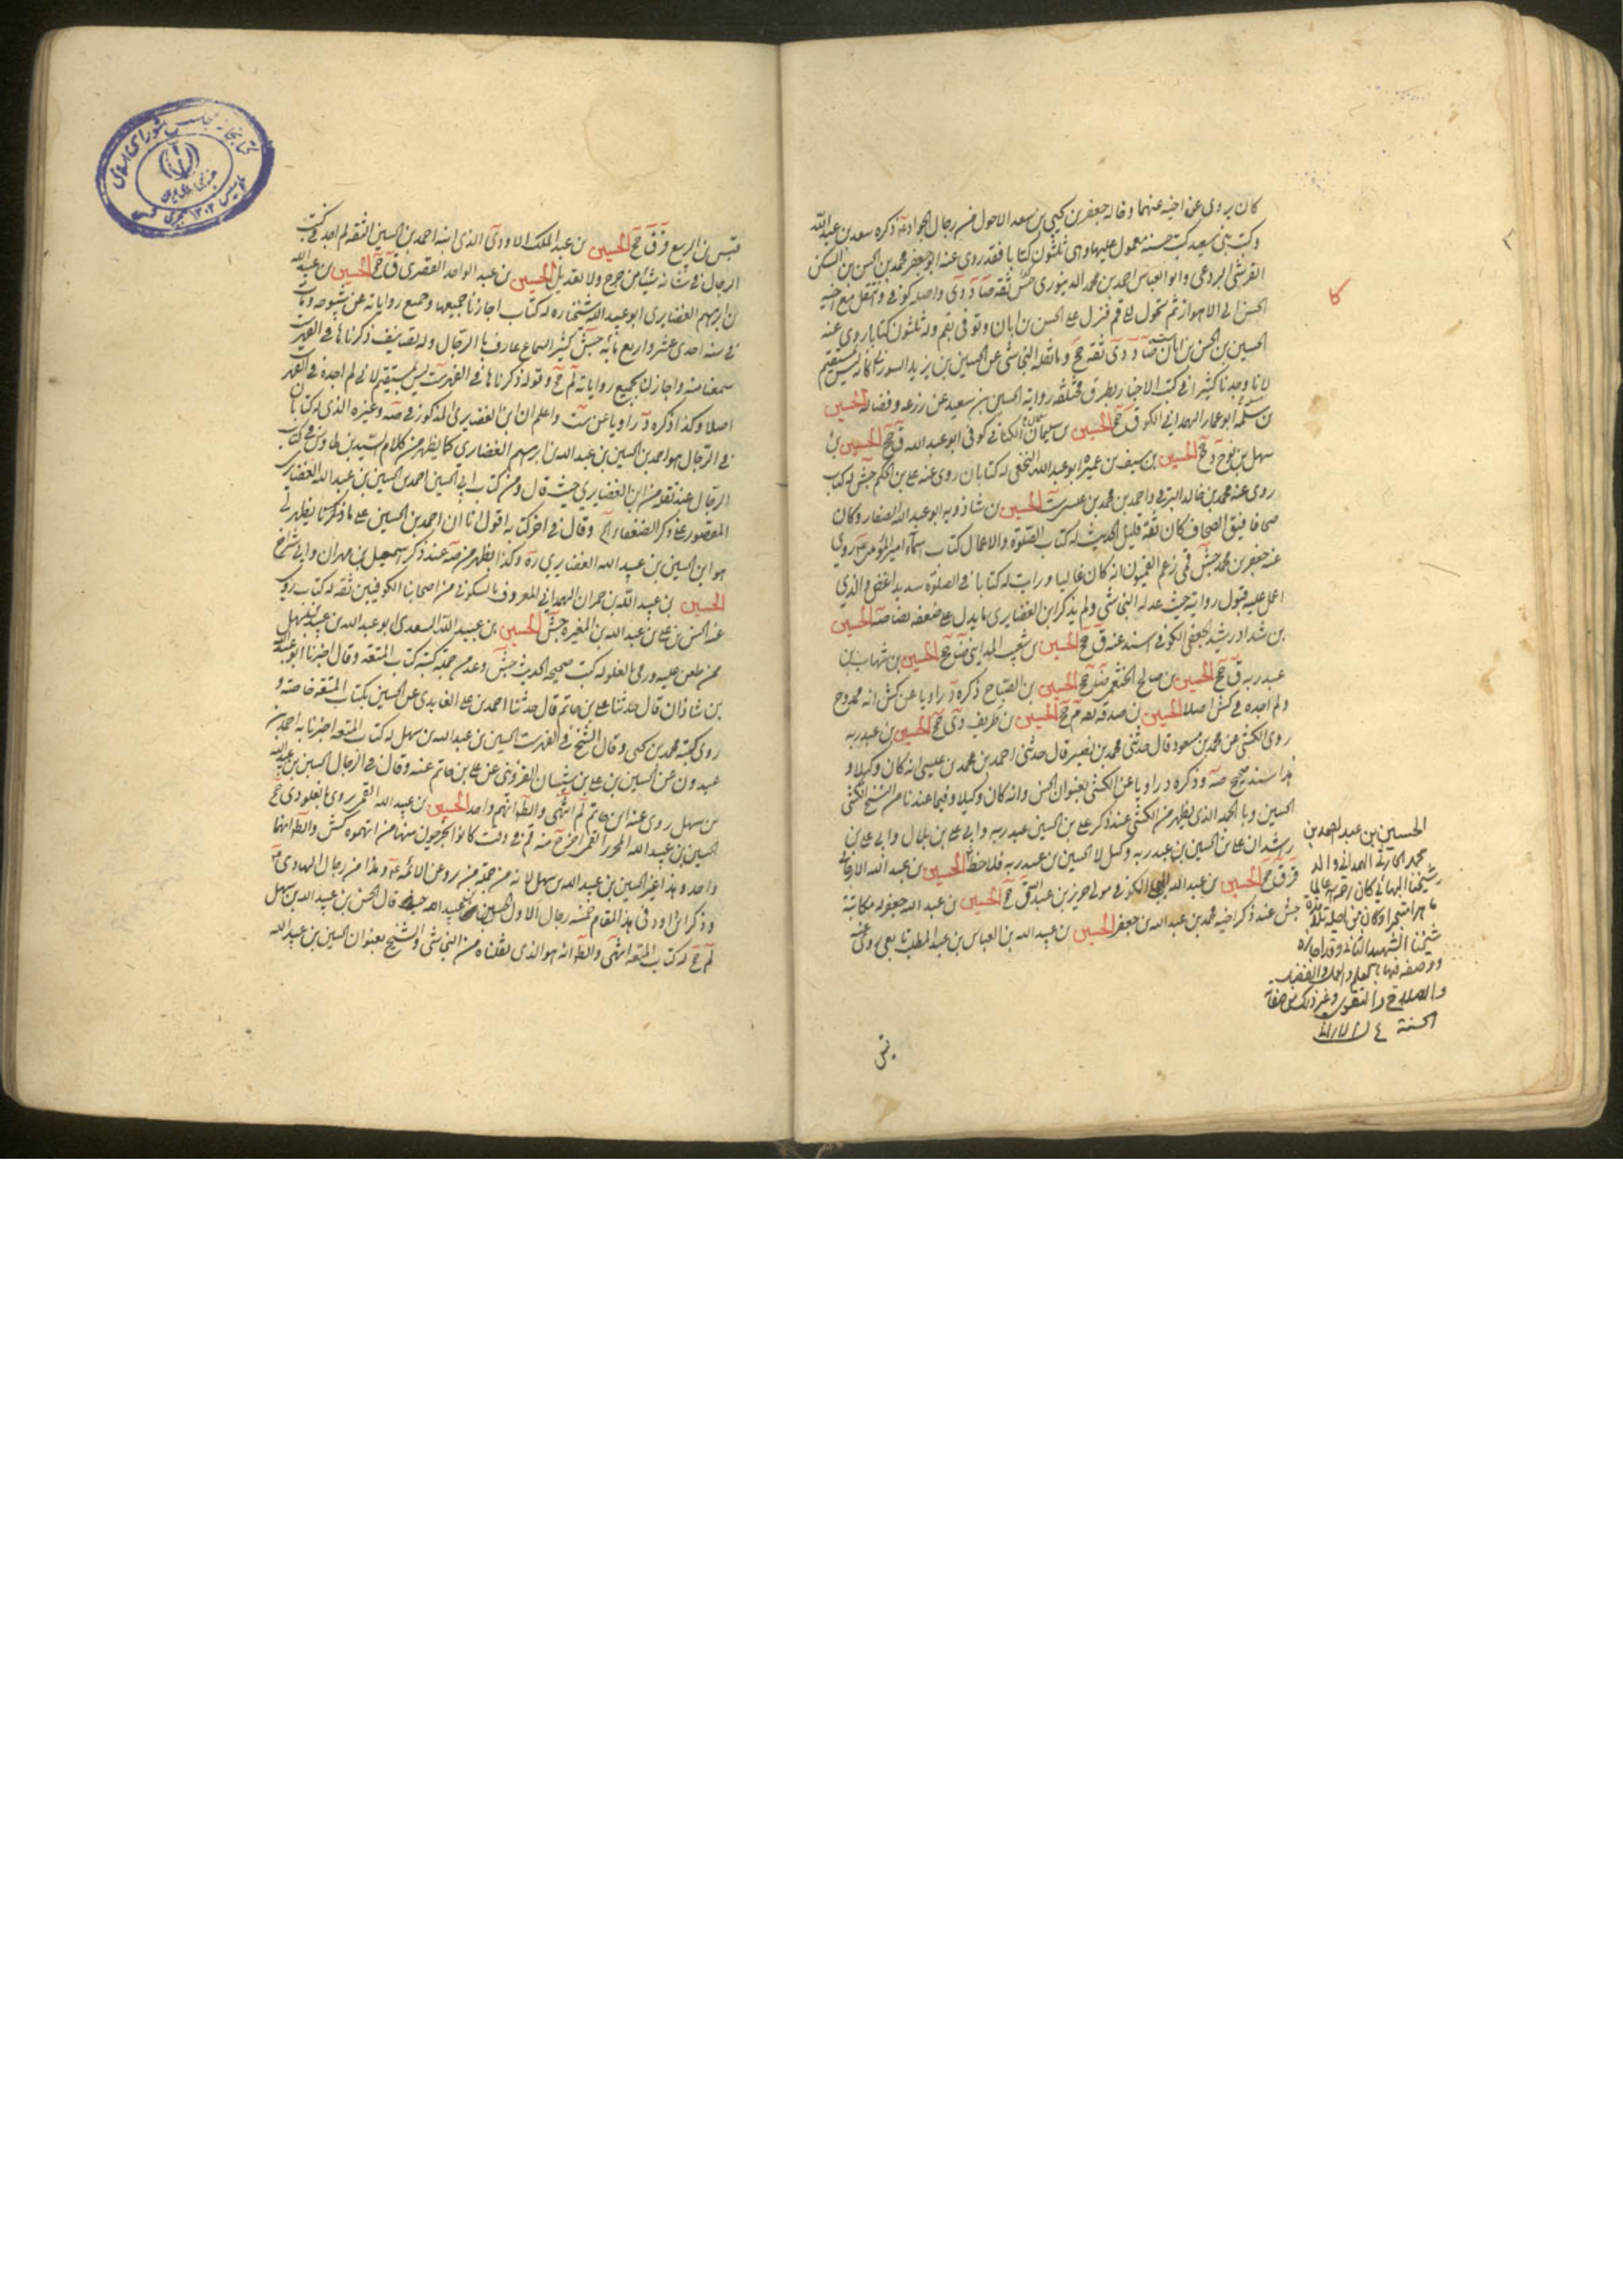 كان يروى عن اخيه عنهما وخاله جعفر بن يحيى بن سعد الاحول من رجال الجواد ذكره سعد بن عبدالله
وكتب بنى سعيد كتب حسنة معمول عليها وهى ثلثون كتابا فقد روى عنه ابو جعفر محمد بن الحسن بن السكن
القرشى البردعى وابو العباس احمد بن محمد الدينورى جش ثقة ضا د دى واصله كوفى وانتقل مع اخيه
الحسن الى الاهواز ثم تحول الى قم فنزل على الحسن بن ابان وتوفى بقم وله ثلثون كتابا روى عنه
الحسين بن الحسن بن ابان ست ضا د دى ثقة جخ وما نقله النجاشى عن الحسين بن يزيد السورائى كانه ليس بمستقيم
لانا وجدنا كثيرا فى كتب الاخبار بطرق مختلفة رواية الحسين بن سعيد عن زرعة وفضالة الحسين
بن سلمة ابو عمار الهمدانى الكوفى ق جخ الحسين بن سليمان الكنانى كوفى ابو عبد الله ق جخ الحسين بن
سهل بن نوح د جخ الحسين بن سيف بن عميرة ابو عبد الله النخعى له كتابان روى عنه على بن الحكم جش له كتاب
روى عنه محمد بن خالد البرقى واحمد بن محمد بن عيسى ست الحسين بن شاذويه ابو عبد الله الصفار وكان
صحافا فيق الصحاف كان ثقة قليل الحديث له كتاب الصلوة والاعمال كتاب اسماء امير المؤمنين روى
عنه جعفر بن محمد جش قمى زعم القميون انه كان غاليا ورايت له كتابا فى الصلوة سديدا غض والذى
اعمل عليه قبول روايته حيث عدله النجاشى ولم يذكر ابن الغضايرى ما يدل على ضعفه نصا صه الحسين
بن شداد بن رشيد الجعفى الكوفى اسند عنه ق جخ الحسين بن شعيب المداينى ضا جخ الحسين بن شهاب بن
عبد ربه ق جخ الحسين بن صالح الخثعمى ضا جخ الحسين بن الصباح ذكره د راويا عن كش انه ممدوح
ولم اجده فى كش اصلا الحسين بن صدقة م جخ الحسين بن ظريف دى جخ الحسين بن عبد ربه
روى الكشى عن محمد بن مسعود قال حدثنى محمد بن نصير قال حدثنى احمد بن محمد بن عيسى انه كان وكيلا و
هذا سند صحيح صه وذكره د راويا عن الكشى بعنوان الحسن وانه كان وكيلا وفيما عندنا من نسخ الكشى
الحسين وبالجملة الذى يظهر من الكشى عند ذكر على بن الحسين بن عبد ربه وابى على بن بلال وابى على بن
راشد ان على بن الحسين بن عبد ربه وكيل لا الحسين بن عبد ربه فلاحظ الحسين بن عبد الله الارجانى
قر ق جخ الحسين بن عبد الله البجلى الكوفى مولى جرير بن عبد الله ق جخ الحسين بن عبد الله جعفر له مكاتبة
جش عند ذكر اخيه محمد بن عبد الله بن جعفر الحسين بن عبد الله بن العباس بن عبد المطلب تابعى روى عنه
الحسين بن عبد الصمد بن
محمد الحارثى الهمدانى والد
شيخنا البهائى كان رحمه الله عالما
ماهرا متبحرا وكان من اجلة تلامذة
شيخنا الشهيد الثانى وقد اجازه
ووصفه فيها بالعلم والعمل والفضل
والصلاح والتقوى وغير ذلك من صفاته
الحسنة
قيس
قيس بن الربيع قر ق جخ الحسين بن عبد الملك الاودى الذى ابنه احمد بن الحسين الثقة لم اجد فى كتب
الرجال فى شانه شيئا من جرح ولا تعديل الحسين بن عبد الواحد القصرى ق جخ الحسين بن عبيد الله
بن ابرهيم الغضايرى ابو عبد الله شيخنا ره له كتاب اجازنا جميعها وجميع رواياته عن شيوخه ومات
فى سنة احدى عشر واربع مائة جش كثير السماع عارف بالرجال وله تصانيف ذكرناها فى الفهرست
سمعنا منه واجاز لنا بجميع رواياته لم جخ وقوله ذكرناها فى الفهرست ليس بمستقيم لانى لم اجده فى الفهرست
اصلا وكذا ذكره د راويا عن ست واعلم ان ابن الغضايرى المذكور فى صه وغيره الذى له كتابان
فى الرجال هو احمد بن الحسين بن عبيد الله بن ابرهيم الغضايرى كما يظهر من كلام السيد بن طاوس فى كتاب
الرجال عند نقله من ابن الغضايرى حيث قال ومن كتاب ابى الحسين احمد بن الحسين بن عبيد الله الغضايرى
المقصور على ذكر الضعفاء وقال فى اخر كتابه اقول انا ان احمد بن الحسين على ما ذكرنا يظهر لى
هو ابن الحسين بن عبيد الله الغضايرى ره وكذا يظهر من صه عند ذكر اسمعيل بن مهران وابى شداخ
الحسين بن عبيد الله بن حمران الهمدانى المعروف بالسكونى من اصحابنا الكوفيين ثقة له كتاب روى
عنه الحسن بن على بن عبد الله بن المغيرة جش الحسين بن عبيد الله السعدى ابو عبد الله بن عبيد الله بن سهل
ممن طعن عليه ورمى بالغلو له كتب صحيحة الحديث جش وعد من جملة كتبه كتاب المتعة وقال اخبرنا ابو عبد الله
بن شاذان قال حدثنا على بن حاتم قال حدثنا احمد بن على الفايدى عن الحسين بكتاب المتعة خاصة و
روى كتبه محمد بن يحيى وقال الشيخ فى الفهرست الحسين بن عبد الله بن سهل له كتاب المتعة اخبرنا به احمد بن
عبدون عن الحسين بن على بن شيبان القزوينى عن على بن حاتم عنه وقال فى الرجال الحسين بن عبيد الله
بن سهل روى عنه ابن حاتم لم انتهى والظ انهم واحد الحسين بن عبيد الله القمى رمى بالغلو دى جخ
الحسين بن عبيد الله المحرر القمى اخرج منه قم فى وقت كانوا يخرجون منها من اتهموه كش والظ انهما
واحد وهذا غير الحسين بن عبيد الله بن سهل لانه من جملة من روى عن الائمة وهذا من رجال الهادى
وذكر ابن داود فى هذا المقام خمسة رجال الاول الحسين بن عبيد الله جش قال الحسن بن عبيد الله بن سهل
لم جخ له كتاب المتعة انتهى والظ انه هو الذى نقلناه من النجاشى والشيخ بعنوان الحسين بن عبيد الله
كتابخانه مجلس شوراى اسلامى